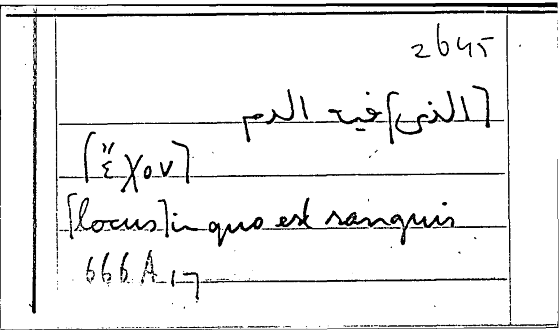 2645
[الذى] فيه الدم
[ἔχον]
[locus] in quo est sanguis
666A 17